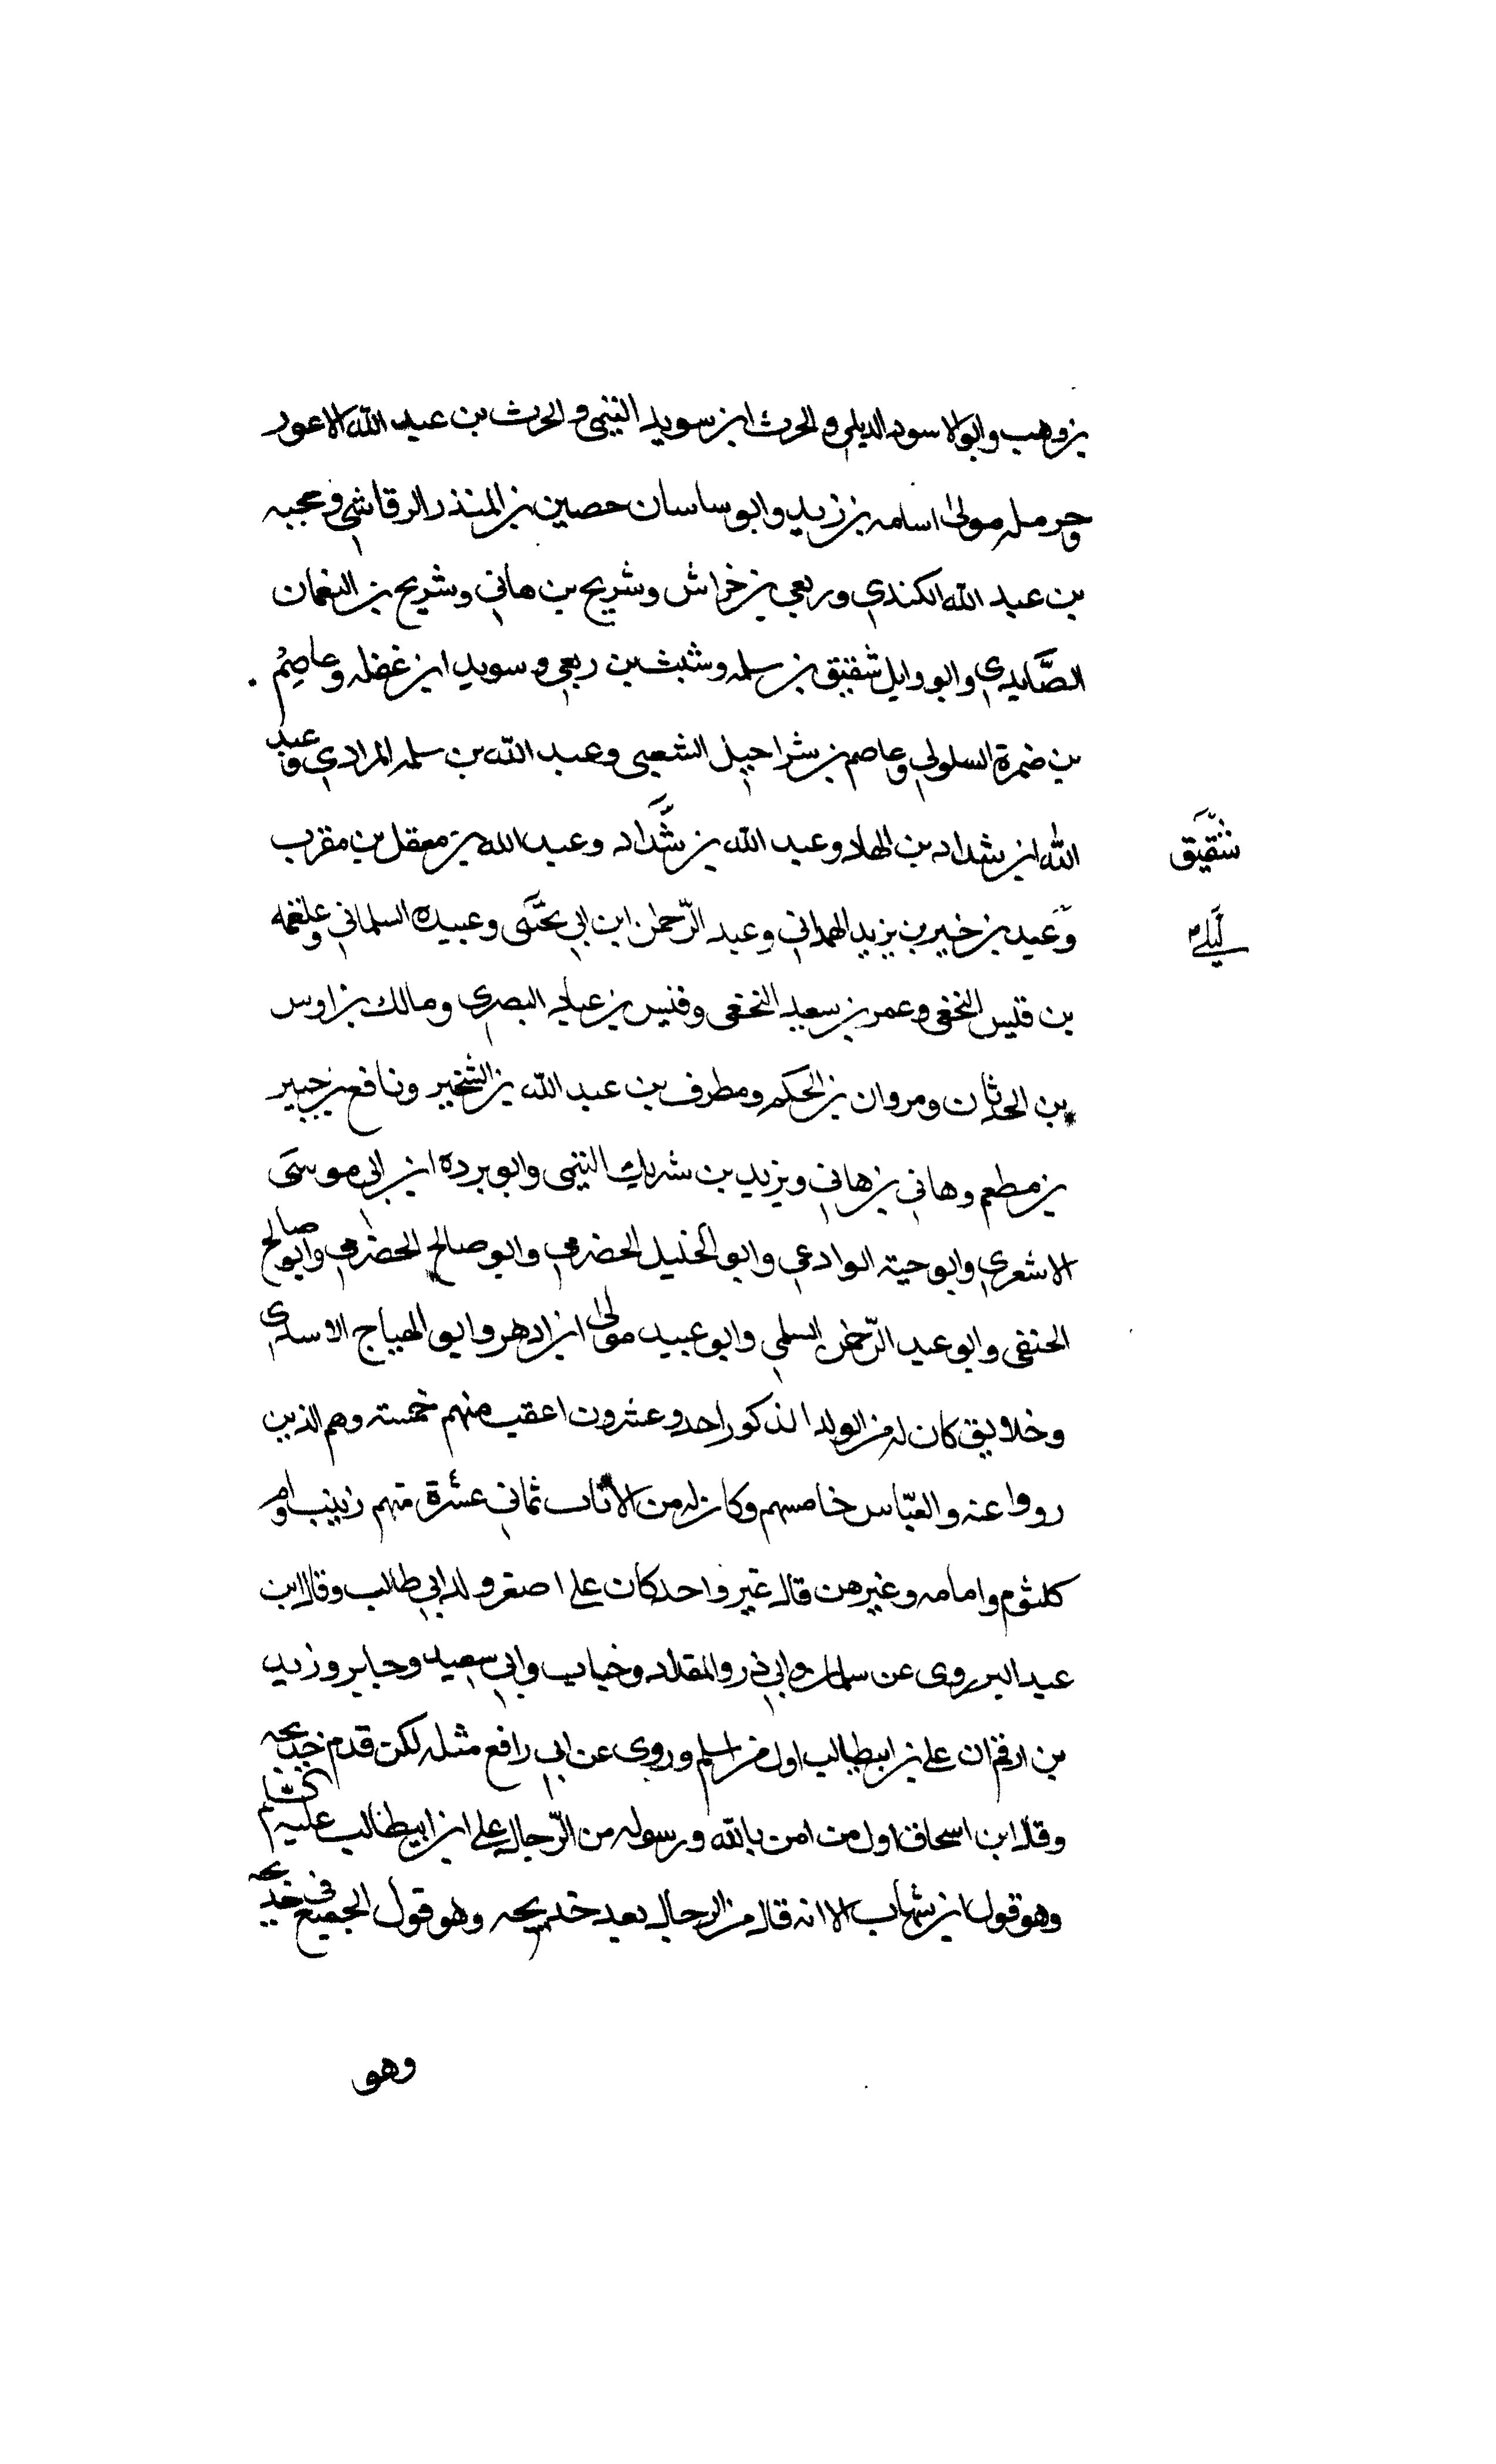 بن وهب وابو الاسود الديلي والحرث ابن سويد التيمي والحرث بن عبد الله الاعور
وحرمله مولى اسامه بن زيد وابو ساسان حصين بن المنذر الرقاشي وحجيه
بن عبد الله الكندي وربعي بن خراش وشريح بن هاني وشريح بن النعمان
الصَّايدي وابو وايل شقيق بن سلمه وشبث بن ربعي وسويد ابن غفله وعاصم
بن ضمرة السلولي وعاصم بن شراحيل الشعبي وعبد الله بن سلمه المرادي وعبد
الله ابن شداد بن الهاد وعبد الله بن شَدّاد وعبد الله بن معقل بن مقرب
شقيق
وعبد بن خير بن يزيد الهمداني وعبد الرّحمن ابن ابي يحيَى وعبيده السلماني وعلقمه
ليلى
بن قليس النخعي وعمر بن سعيد النخعي وقيس بن عباد البصري ومالك بن اوس
بن الحدثان ومروان بن الحكم ومطرف بن عبد الله بن الشخير ونافع بن جبير
بن مطعم وهاني بن هاني ويزيد بن شريك التيمي وابو برده ابن ابي موسَى
الاشعري وابو حية الوادعي وابو الخليل الحضرمي وابو صالح الحضرمي وابو صالح
الحنفي وابو عبد الرّحمن السلمي وابو عبيد مولى ابن ازهر وابو الهياج الاسدي
وخلايق كان له من الولد الذكور احد وعشرون اعقب منهم خمسة وهم الذين
رووا عنه والعبّاس خامسهم وكان له من الاناث ثماني عشرة منهم زينب وام
كلثوم وامامه وغيرهن قال غير واحد كان علي اصغر ولد ابي طالب وقال ابن
عبد البر روى عن سلمان وابي ذر والمقداد وخباب وابي سعيد وجابر وزيد
بن ارقم ان علي بن ابيطالب اول من اسلم وروي عن ابي رافع مثله لكن قدم خديجه
وقال ابن اسحاق اول من امن بالله ورسوله من الرّجال علي ابن ابيطالب عليه السّلم
وهو قول ابن شهاب الا انه قال من الرجال بعد خديجه وهو قول الجميع في خديجه
وهو